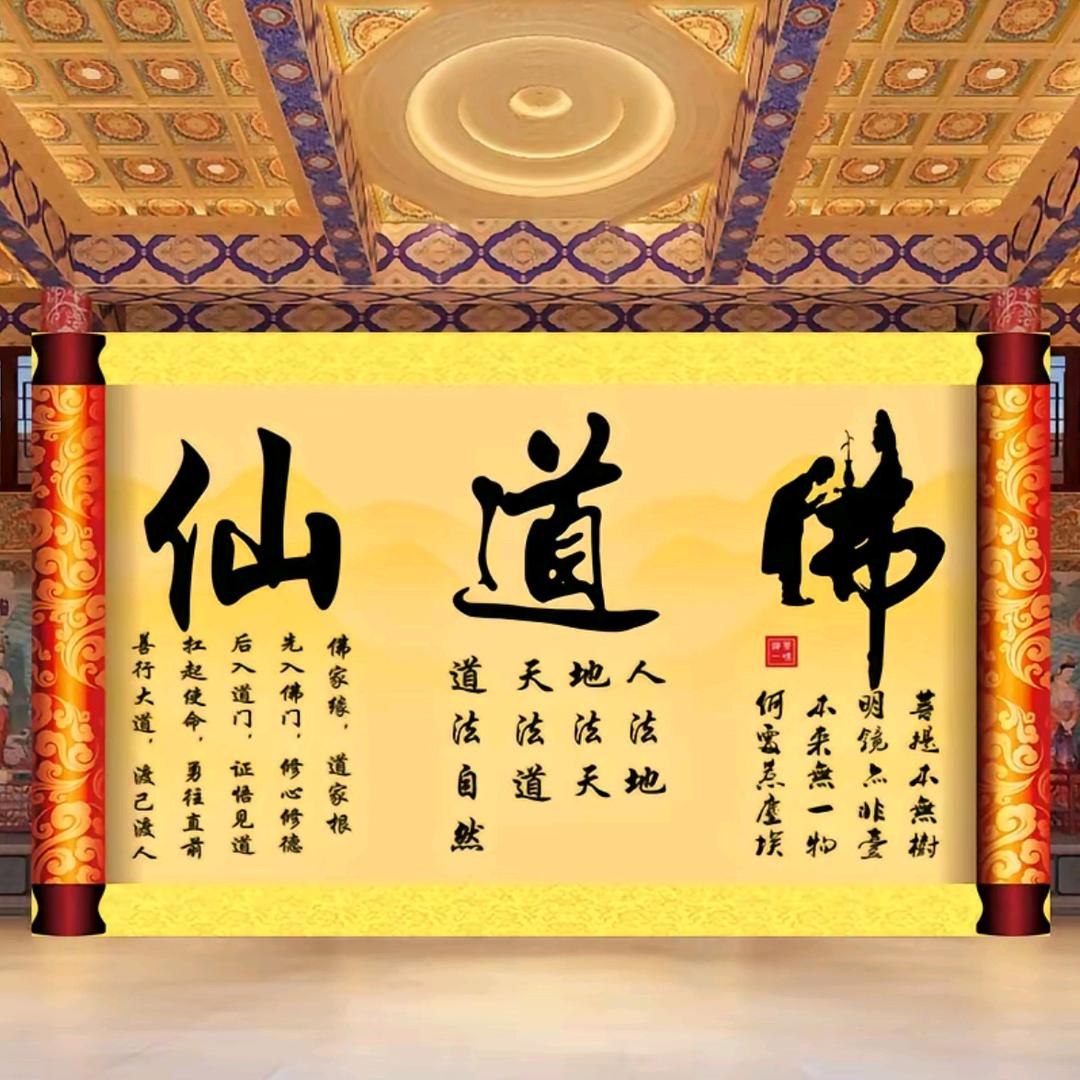 佛
菩提本無樹
明镜亦非臺
本来無一物
何處惹塵埃
道
人法地
地法天
天法道
道法自然
仙
佛家缘，道家根
先入佛门，修心修德
后入道门，证悟见道
扛起使命，勇往直前
善行大道，渡己渡人